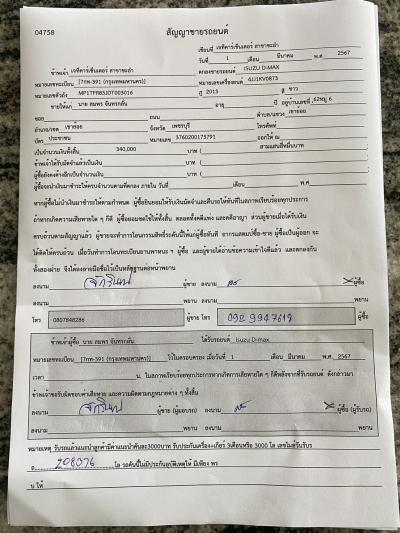 04758
สัญญาขายรถยนต์
เขียนที่ เจทีคาร์เซ็นเตอร์ สาขาชะอำ
วันที่ 1 เดือน มีนาคม พ.ศ 2567
ข้าพเจ้า เจทีคาร์เซ็นเตอร์ สาขาชะอำ ตกลงขายรถยนต์ ISUZU D-MAX
หมายเลขทะเบียน [7กพ-391 (กรุงเทพมหานคร)] หมายเลขเครื่องยนต์ 4JJ1KV0873
หมายเลขตัวถัง MP1TFR85JDT003016 ปี 2013 สี ขาว
ขายให้แก่ นาย สมพร จันทรกลั่น อายุ ปี อยู่บ้านเลขที่ 62หมู่ 6
ซอย ถนน ตำบล/แขวง เขาย้อย
อำเภอ/เขต เขาย้อย จังหวัด เพชรบุรี โทรศัพท์
บัตร ประชาชน หมายเลข 3760200175791 ออกให้ ณ
เป็นจำนวนเงินทั้งสิ้น 340,000 บาท ( สามแสนสี่หมื่นบาท
ข้าพเจ้าได้รับมัดจำแล้วเป็นเงิน บาท (
ผู้ซื้อยังคงค้างอีกเป็นจำนวนเงิน บาท (
ผู้ซื้อจะนำเงินมาชำระให้ครบจำนวนตามที่ตกลง ภายใน วันที่ เดือน พ.ศ
หากผู้ซื้อไม่นำเงินมาชำระให้ตามกำหนด ผู้ซื้อยินยอมให้ริบเงินมัดจำและคืนรถให้ทันทีในสภาพเรียบร้อยทุกประการ
ถ้าหากเกิดความเสียหายใด ๆ ก็ดี ผู้ซื้อยอมชดใช้ให้ทั้งสิ้น ตลอดทั้งคดีแพ่ง และคดีอาญา ส่วนผู้ขายเมื่อได้รับเงิน
ครบถ้วนตามสัญญาแล้ว ผู้ขายจะทำการโอนกรรมสิทธิ์รถคันนี้ให้แก่ผู้ซื้อทันที
ทั้งสองฝ่าย จึงได้ลงลายมือชื่อไว้เป็นหลักฐานต่อหน้าพยาน
ลงนาม ผู้ขาย ลงนาม ผู้ซื้อ
ลงนาม พยาน ลงนาม พยาน
โทร 0807848286 ผู้ขาย โทร 092 9947619 ผู้ซื้อ
ข้าพเจ้าผู้ซื้อ นาย สมพร จันทรกลั่น ได้รับรถยนต์ Isuzu D-max
หมายเลขทะเบียน [7กพ-391 (กรุงเทพมหานคร)] ไว้ในครอบครอง เมื่อวันที่ 1 เดือน มีนาคม พ.ศ. 2567
เวลา น. ในสภาพเรียบร้อยทุกประการหากเกิดการเสียหายใด ๆ ก็ดีหลังจากที่รับรถยนต์ ดังกล่าวมา
ข้าพเจ้าขอรับผิดชอบค่าเสียหาย และความผิดตามกฎหมายต่าง ๆ ทั้งสิ้น
ลงนาม ผู้ขาย (ผู้มอบรถ) ลงนาม ผู้ซื้อ (ผู้รับรถ)
ลงนาม พยาน ลงนาม พยาน
หมายเหตุ รับรถแล้วแนะนำลูกค้ามีค่าแนะนำคันละ3000บาท รับประกันเครื่อง+เกียร์ 3เดือนหรือ 3000 โล เลขไมล์วันรับร
ถ 208376 โล รถคันนี้ไม่มีประกันอุบัติเหตุให้ มีเพียง พร
บ ให้